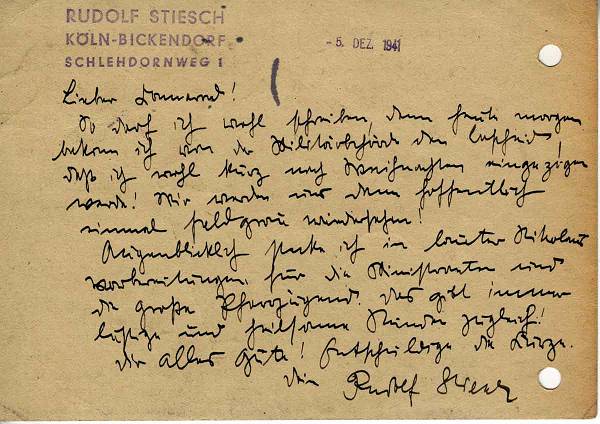 RUDOLF STIESCH
KÖLN-BICKENDORF
SCHLEHDORNWEG 1
- 5. DEZ. 1941
Lieber Kamerad!
So darf ich wohl schreiben, denn heute morgen
bekam ich von der Militärbehörde den Bescheid,
daß ich wohl kurz nach Weihnachten eingezogen
werde! Wir werden uns dann hoffentlich
einmal feldgrau wiedersehen!
Augenblicklich stecke ich in lauter Nikolaus
vorbereitungen für die Ministranten und
die große Pfarrjugend. Das gibt immer
lustige und heilsame Stunden zugleich!
Dir alles Gute! Entschuldige die Kürze.
Dein Rudolf Stiesch